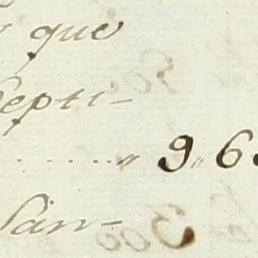 y que
Septi-
......... „ 9„ 63
San-